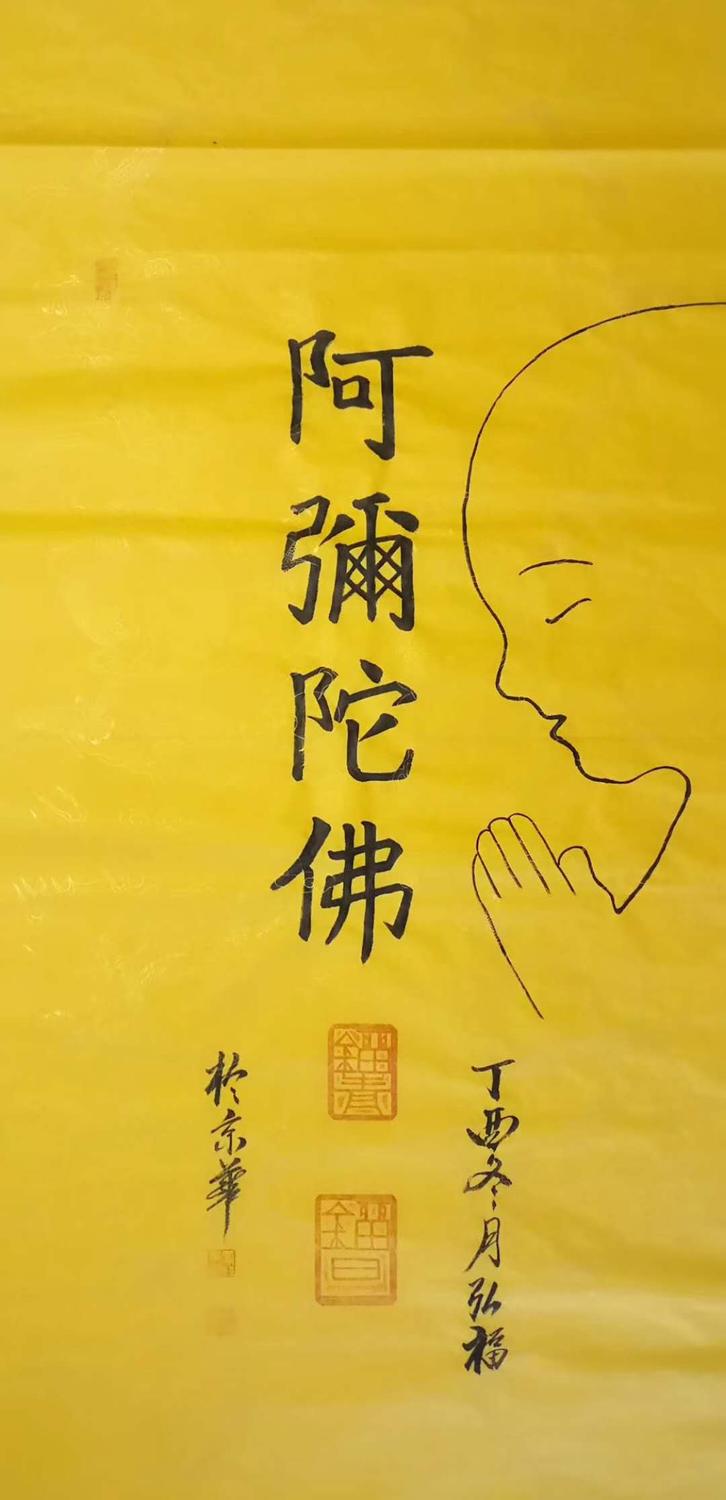 阿彌陀佛
丁酉冬月弘福
於京華